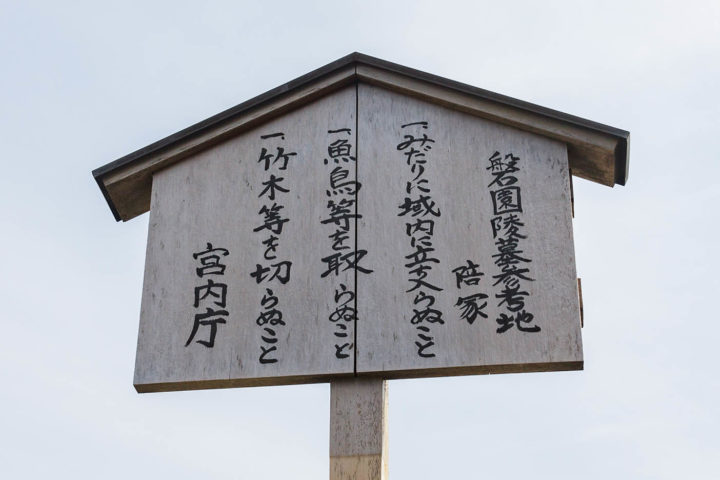 磐園陵墓参考地
陪冢
一、みだりに域内に立支らぬこと
一、魚鳥等を取らぬこと
一、竹木等を切らぬこと
宮内庁